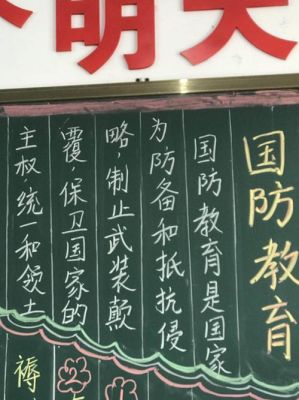 明天
国防教育
国防教育是国家
为防备和抵抗侵
略,制止武装颠
覆,保卫国家的
主权统一和领土
褥